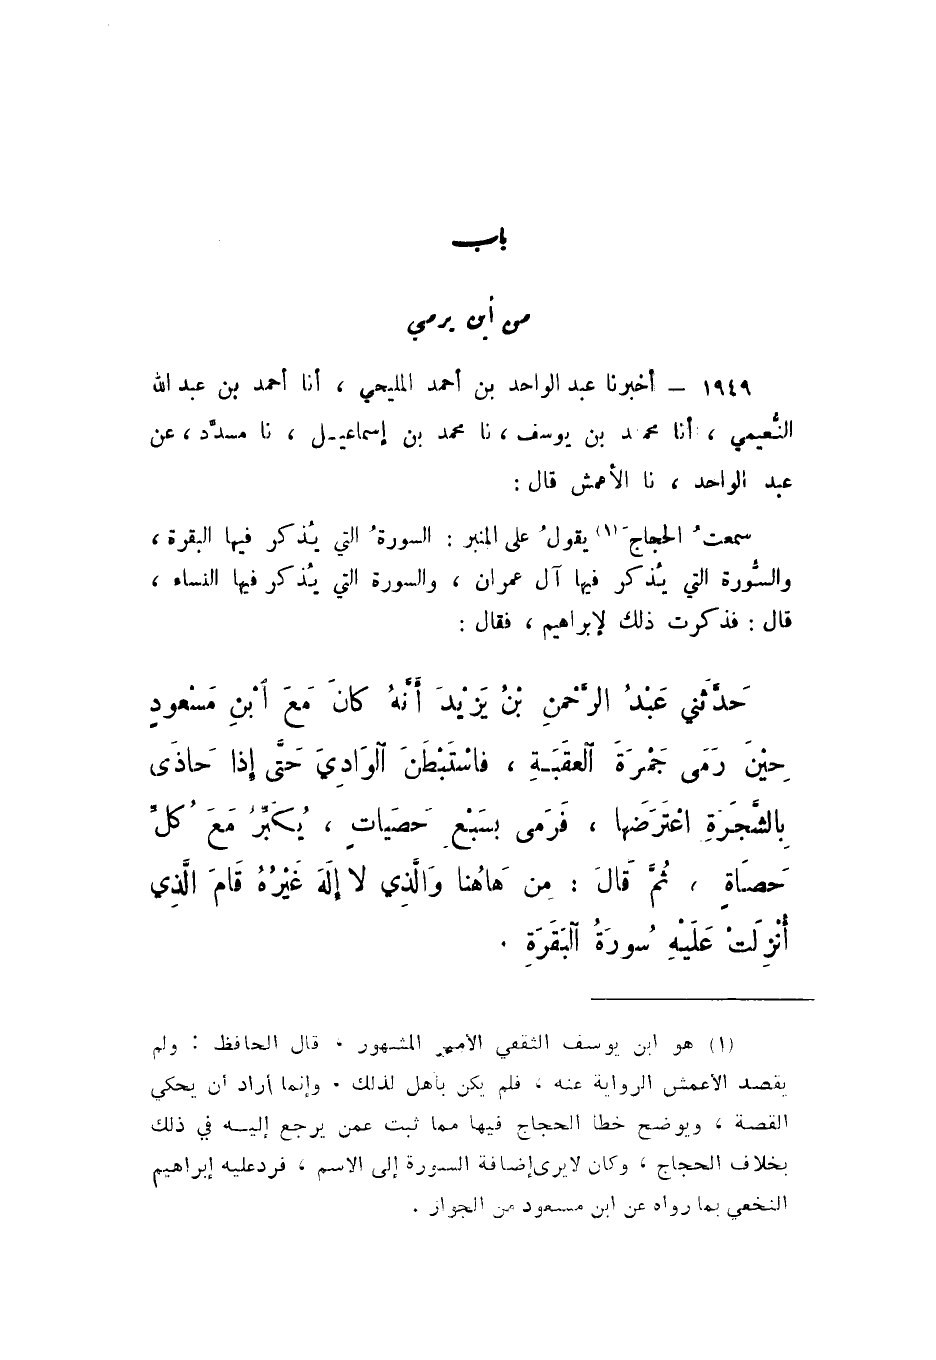 باب
من أين يرمي
١٩٤٩ – أخبرنا عبد الواحد بن أحمد المليحي ، أنا أحمد بن عبد الله
النُّعيمي ، أنا محمد بن يوسف ، نا محمد بن إسماعيل ، نا مسدَّد ، عن
عبد الواحد ، نا الأعمش قال :
سمعتُ الحجاجَ (١) يقولُ على المنبر : السورةُ التي يُذكر فيها البقرة ،
والسُّورة التي يُذكر فيها آل عمران ، والسورة التي يُذكر فيها النساء ،
قال : فذكرت ذلك لإبراهيم ، فقال :
حَدَّثَني عَبْدُ الرَّحْمنِ بْنُ يَزِيْدَ أَنَّهُ كانَ مَعَ ٱبْنِ مَسْعودٍ
حِيْنَ رَمَى جَمْرَةَ ٱلعَقَبَةِ ، فاسْتَبْطَنَ ٱلوَادِيَ حَتَّى إِذا حَاذَى
بِالشَّجَرَةِ اعْتَرَضَها ، فَرَمى بسَبْعِ حَصَياتٍ ، يُكَبِّرُ مَعَ كُلِّ
حَصَاةٍ ، ثُمَّ قَالَ : مِن هَاهُنا وَالَّذِي لا إِلَهَ غَيْرُهُ قَامَ الَّذِي
أُنْزِلَتْ عَلَيْهِ سُورَةُ ٱلبَقَرَةِ .
(١) هو ابن يوسف الثقفي الأمير المشهور . قال الحافظ : ولم
يقصد الأعمش الرواية عنه ، فلم يكن بأهل لذلك . وإنما أراد أن يحكي
القصة ، ويوضح خطأ الحجاج فيها مما ثبت عمن يرجع إليه في ذلك
بخلاف الحجاج ، وكان لايرى إضافة السورة إلى الاسم ، فردعليه إبراهيم
النخعي بما رواه عن ابن مسعود من الجواز .